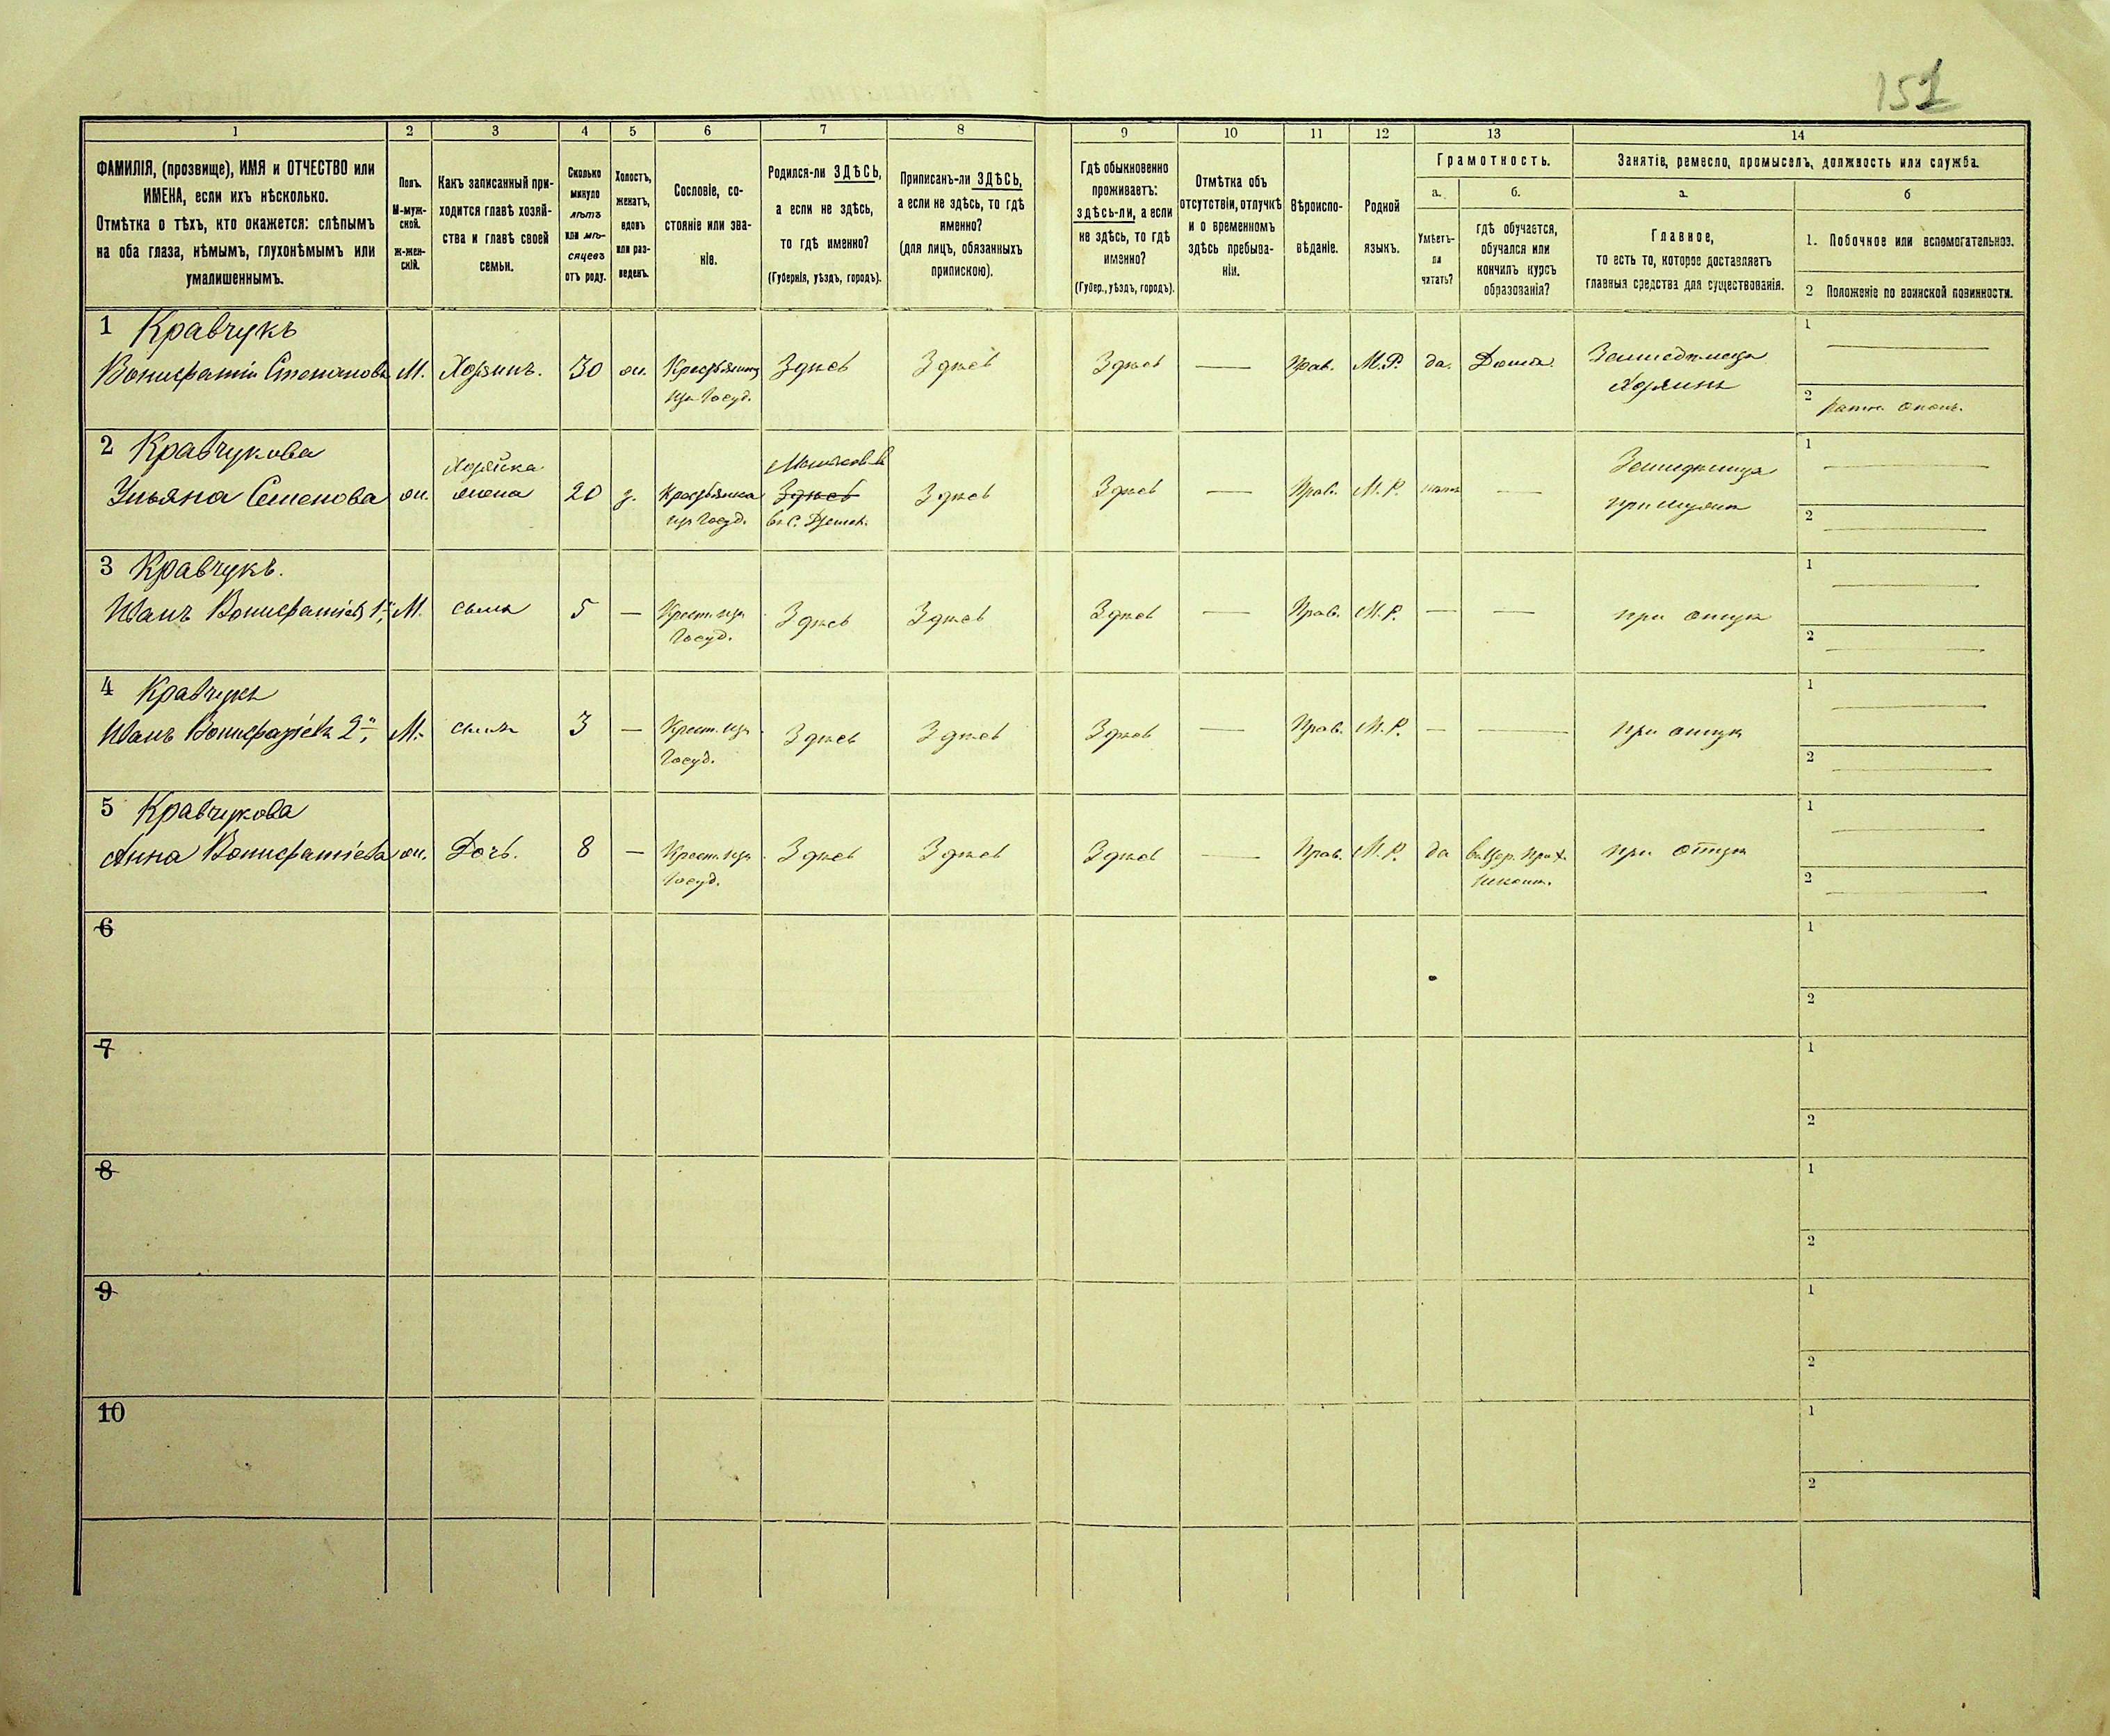 151
1 2 3 4 5 6 7 8 9 10 11 12 13 14
ФАМИЛІЯ, (прозвище), ИМЯ и ОТЧЕСТВО или
ИМЕНА, если ихъ нѣсколько.
Отмѣтка о тѣхъ, кто окажется: слѣпымъ
на оба глаза, нѣмымъ, глухонѣмымъ или
умалишеннымъ.
Полъ.
М-муж-
ской.
ж-жен-
скій.
Какъ записанный при-
ходится главѣ хозяй-
ства и главѣ своей
семьи.
Сколько
минуло
лѣтъ
или мѣ-
сяцевъ
отъ роду.
Холостъ,
женатъ,
вдовъ
или раз-
веденъ.
Сословіе, со-
стояніе или зва-
ніе.
Родился-ли ЗДѢСЬ,
а если не здѣсь,
то гдѣ именно?
(Губернія, уѣздъ, городъ).
Приписанъ-ли ЗДѢСЬ,
а если не здѣсь, то гдѣ
именно?
(для лицъ, обязанныхъ
припискою).
Гдѣ обыкновенно
проживаетъ:
здѣсь-ли, а если
не здѣсь, то гдѣ
именно?
(Губер., уѣздъ, городъ).
Отмѣтка объ
отсутствіи, отлучкѣ
и о временномъ
здѣсь пребыва-
ніи.
Вѣроиспо-
вѣданіе.
Родной
языкъ.
Грамотность.
а. б.
Умѣетъ-
ли
читать?
гдѣ обучается,
обучался или
кончилъ курсъ
образованія?
Занятіе, ремесло, промыселъ, должность или служба.
а б
Главное,
то есть то, которое доставляетъ
главныя средства для существованія.
1. Побочное или вспомогательное.
2 Положеніе по воинской повинности.
1 Кравчукъ
Вонифатій Степановъ М. Хозяинъ. 30 ж. Крестьянинъ Здѣсь Здѣсь Здѣсь — Прав. М.Р. да. Дома Земледѣлецъ
изъ Госуд. Хозяинъ
1 —
2 Ратн. ополч.
2 Кравчукова
Ульяна Семенова ж. Хозяйка
жена 20 з. Крестьянка
из Госуд. Здѣсь
въ С. Здѣсь Здѣсь — Прав. М.Р. — Земледѣлица
при мужѣ
1 —
2 —
3 Кравчукъ.
Иванъ Вонифатіевъ 1й, М. сынъ 5 — Крест. изъ
Госуд. Здѣсь Здѣсь Здѣсь — Прав. М.Р. — — при отцѣ
1 —
2 —
4 Кравчукъ
Иванъ Вонифатіевъ 2й, М. сынъ 3 — Крест. изъ
Госуд. Здѣсь Здѣсь Здѣсь — Прав. М.Р. — — при отцѣ
1 —
2 —
5 Кравчукова
Анна Вонифатіева ж. Дочь. 8 — Крест. изъ
Госуд. Здѣсь Здѣсь Здѣсь — Прав. М.Р. да въ Цер. Прих.
Школѣ. при отцѣ
1 —
2 —
6
1
2
7
1
2
8
1
2
9
1
2
10
1
2